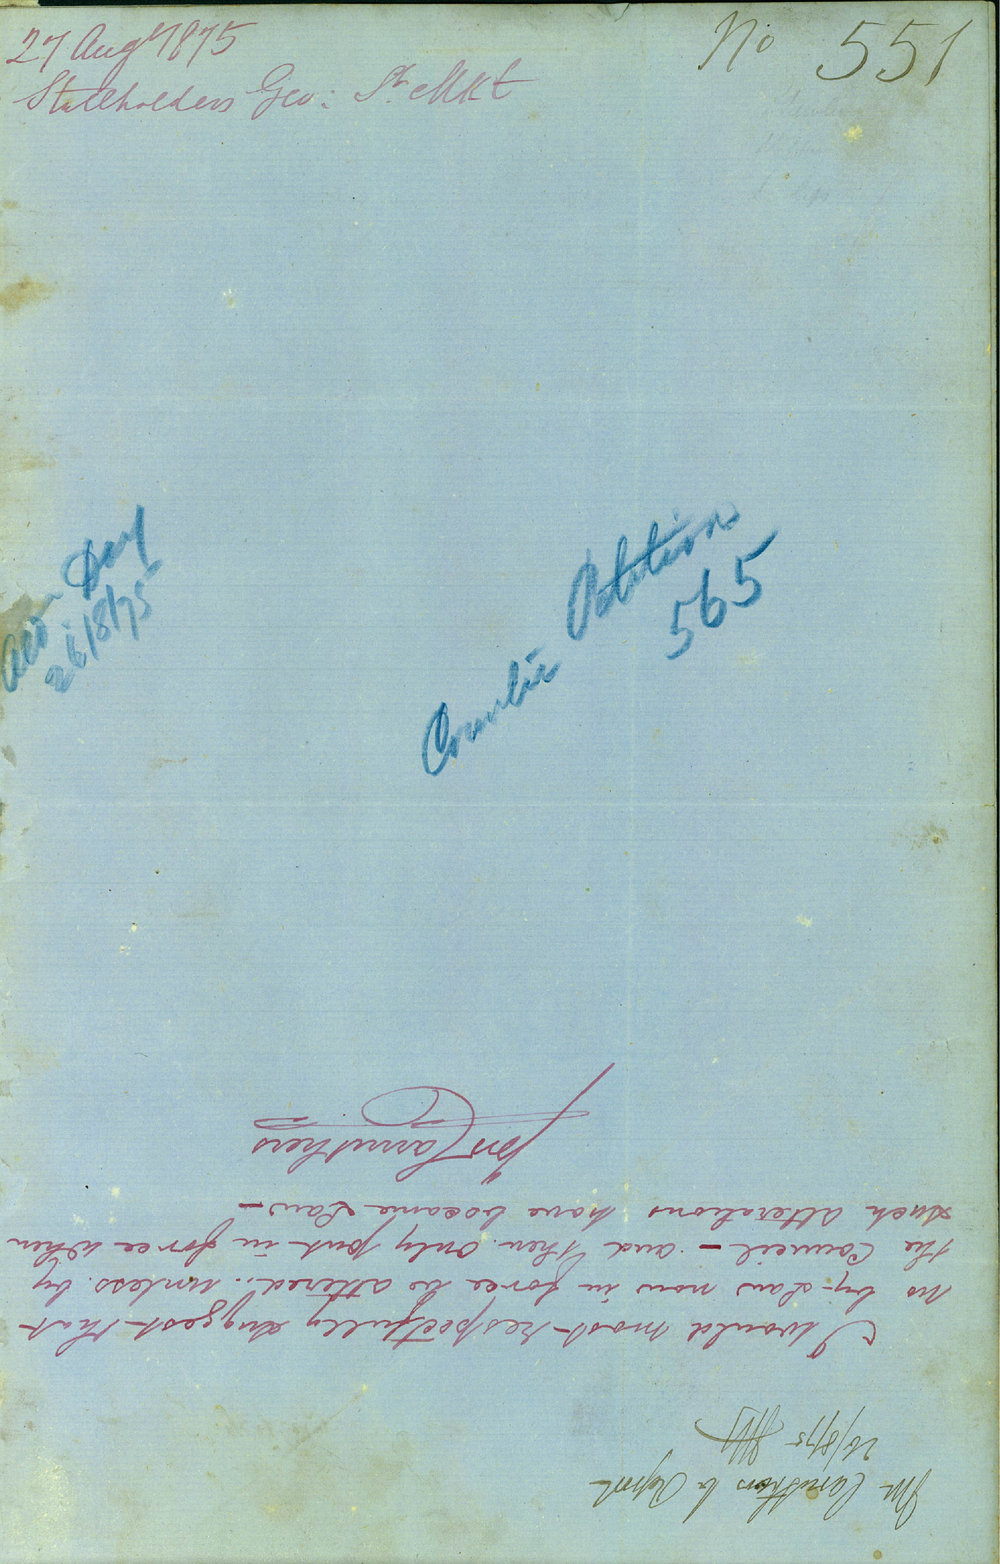 27 Augt 1875
Stallholders Geo: St Mkt
No 551
Petition
565
26/8/75
Mr Carruthers to Report
26/8/75
I would most respectfully suggest that
no by-law now in force be altered, unless by
the Council – and then only put in force when
such alterations have become Law –
Jno Carruthers